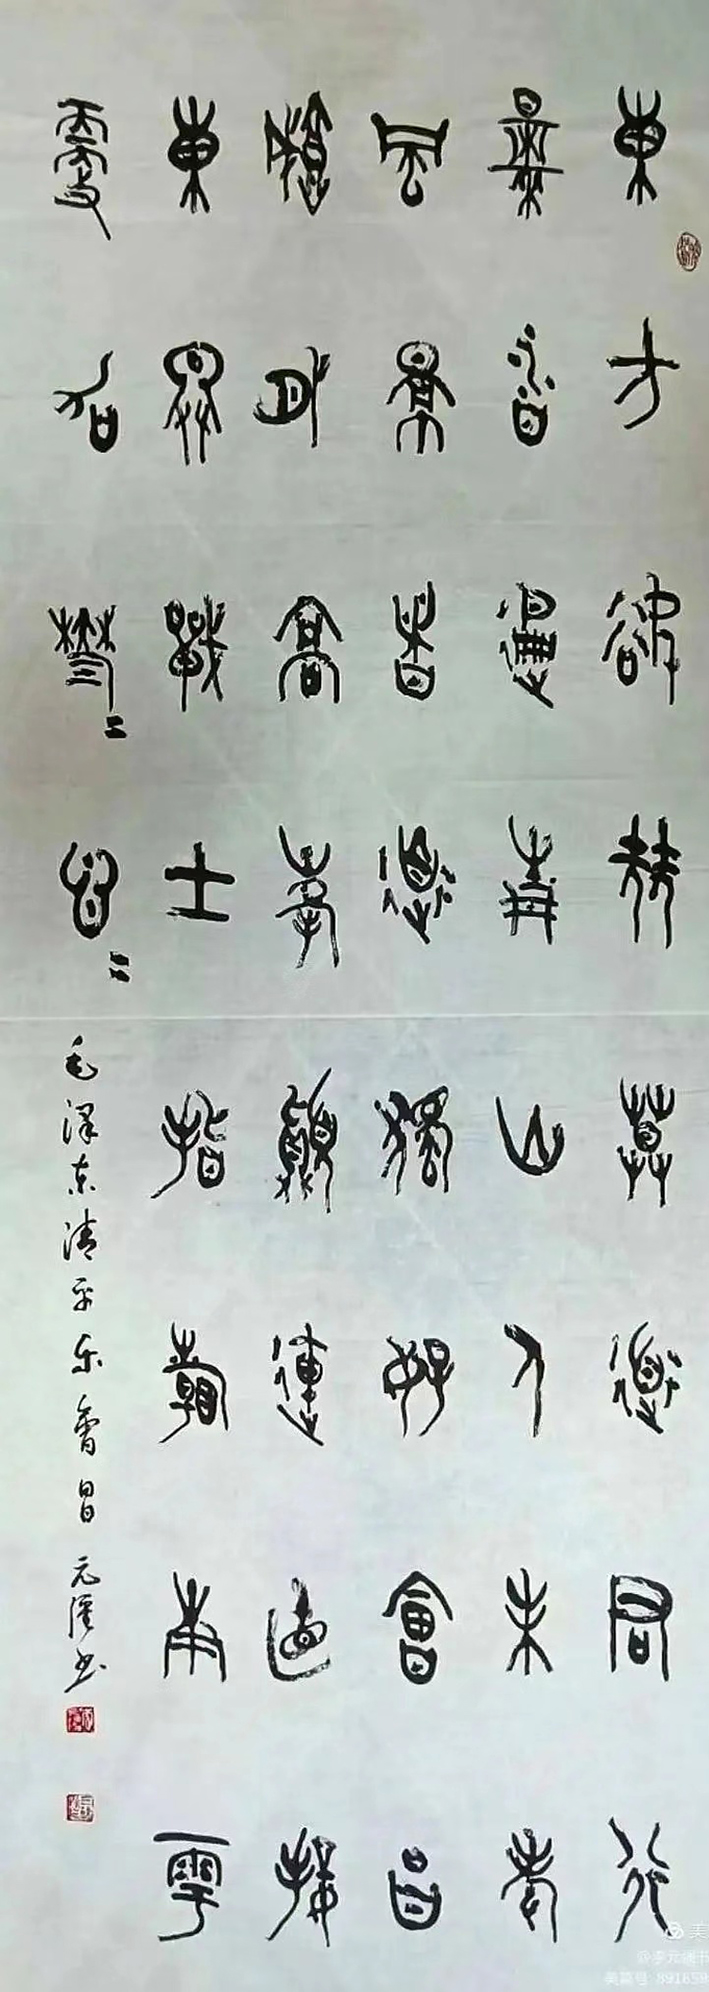 東方欲曉莫道君行
早踏遍青山人未老
風景這邊獨好會昌
城外高峰顛連直接
東溟戰士指看南粵
更加鬱〻蔥〻
毛澤東清平樂會昌 元書
美
美篇号 891659